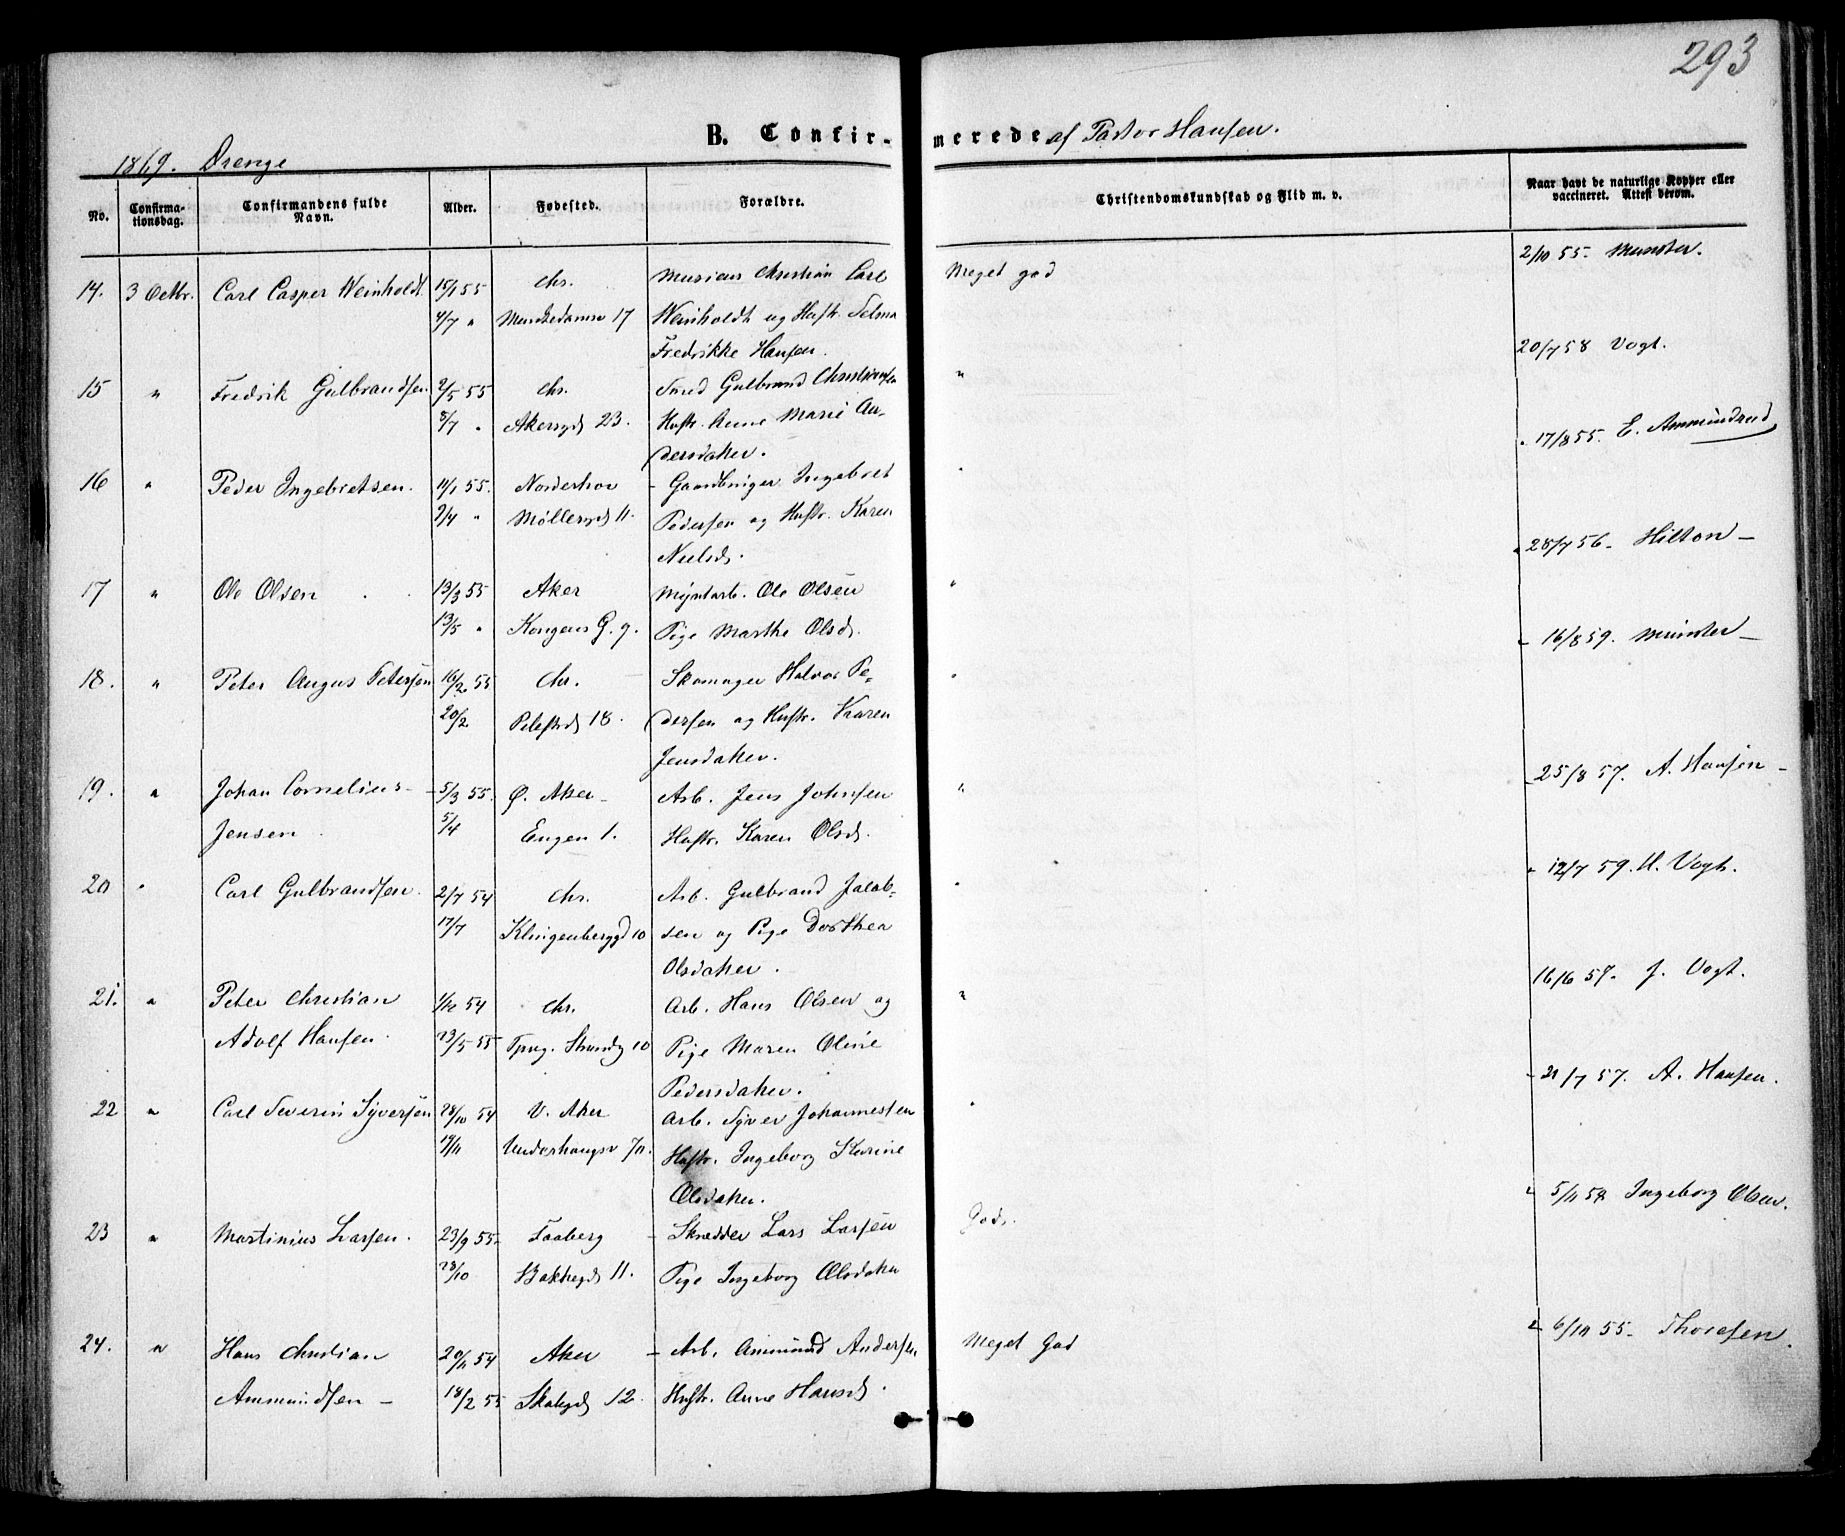 293
B. Confir- merede af Pastor Hansen.
1869. Drenge
No. Confirma-tionsdag. Confirmandens fulde Navn. Alder. Fødested. Forældre. Christendomskundskab og Flid m. v. Naar havt de naturlige Kopper eller vaccineret. Attest derom.
14. 3 Octbr. Carl Casper Weinholdt 15/1 55 Chr. Musicus Christian Carl Meget god 2/10 55. Munster.
4/7 " Munkedamsv 17 Weinholdt og Hustr. Selma
Fredrikke Hansen. 20/7 58 Vogt.
15 " Fredrik Gulbrandsen 2/5 55 Chr. Smed Gulbrand Christiansen "
8/7 " Akersgd 23. Hustr. Anne Marie An-
dersdatter. 17/8 55. E. Ammundrud
16 " Peder Ingebretsen. 11/1 55. Norderhov - Gaardbruger Ingebret "
2/4 " Møllergd 11. Pedersen og Hustr. Karen
Nielsd. " 28/7 56. Hilton -
17 " Ole Olsen 13/3 55 Aker Myntarb. Ole Olsen "
13/5 " Kongens G. 9. Pige Marthe Olsd. " 16/8 59. Munster -
18. " Peter Augus Petersen 16/2 55 Chr. Skomager Halvor Pe- "
20/2 Pilestrd 18. dersen og Hustr. Karen
Jensdatter.
19. " Johan Cornelius- 5/3 55. Ø. Aker- Arb. Jens Johnsen " 25/8 57. A. Hansen -
Jensen 5/4 Engen 1. Hustr. Karen Olsd.
20 " Carl Gulbrandsen. 2/7 54 Chr. Arb. Gulbrand Jacob- " " 12/7 59. U. Vogt.
17/7 Klingenberggd 10 sen og Pige Dorthea
Olsdatter. 16/6 57. J. Vogt.
21. " Peter Christian 1/12 54 Chr. Arb. Hans Olsen og "
Adolf Hansen. 23/5 55 Strandg 10 Pige Maren Oline
Pedersdatter. - 21/7 57. A. Hansen.
22 " Carl Severin Syversen 28/10 54 V. Aker Arb. Syver Johannesen "
19/11 Underhaugsv 7a. Hustr. Ingeborg Karine
Olsdatter. " 5/11 58 Ingeborg Olsen.
23 " Martinius Larsen. 23/9 55- Faaberg - Skredder Lars Larsen God.
28/10 Bakkegd 11. Pige Ingeborg Olsdatter
24. " Hans Christian 20/11 54 Aker - Arb. Ammund Andersen Meget God " 6/10 55- Thoresen.
Ammundsen - 18/2 55 Skoled 12. Hustr. Anne Hansd.